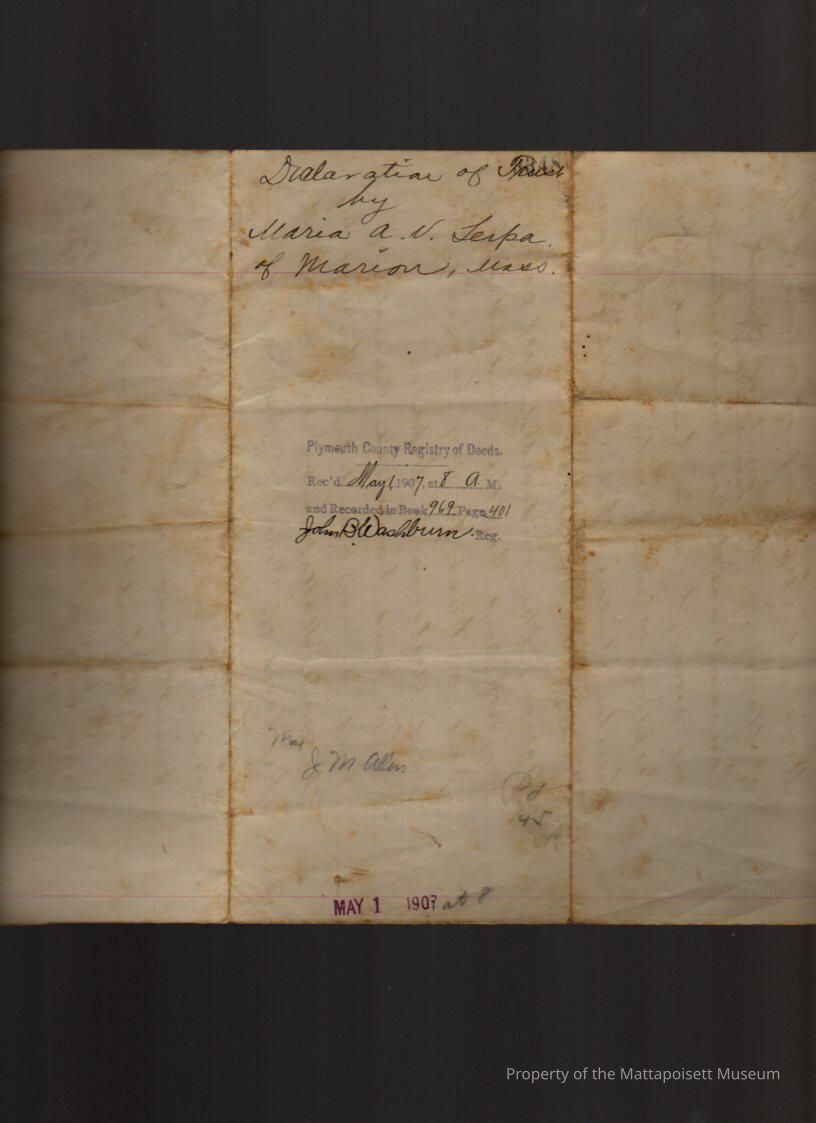 Declaration of Trust
by
Maria A. V. Serpa.
of Marion, Mass.
Plymouth County Registry of Deeds.
Rec'd. May 1, 1907, at 8 A M.
and Recorded in Book 969 Page 401
John B Washburn Reg.
J M Allen
Pd
45
MAY 1 1907 at 8
Property of the Mattapoisett Museum